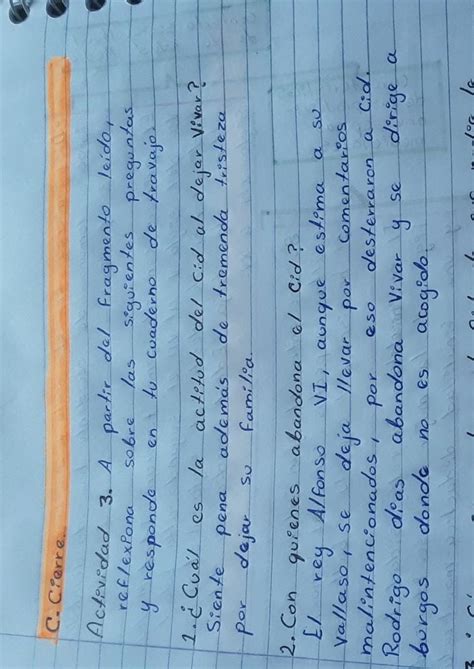 C. Cierre
Actividad 3. A partir del fragmento leído,
reflexiona sobre las siguientes preguntas
y responde en tu cuaderno de travajo
1. ¿Cuál es la actitud del Cid al dejar Vivar?
Siente pena además de tremenda tristeza
por dejar su familia
2. Con quienes abandona el Cid?
El rey Alfonso VI, aunque estima a su
Vallaso, se deja llevar por comentarios
malintencionados, por eso desterraron a Cid.
Rodrigo dias abandona Vivar y se dirige a
burgos donde no es acogido.